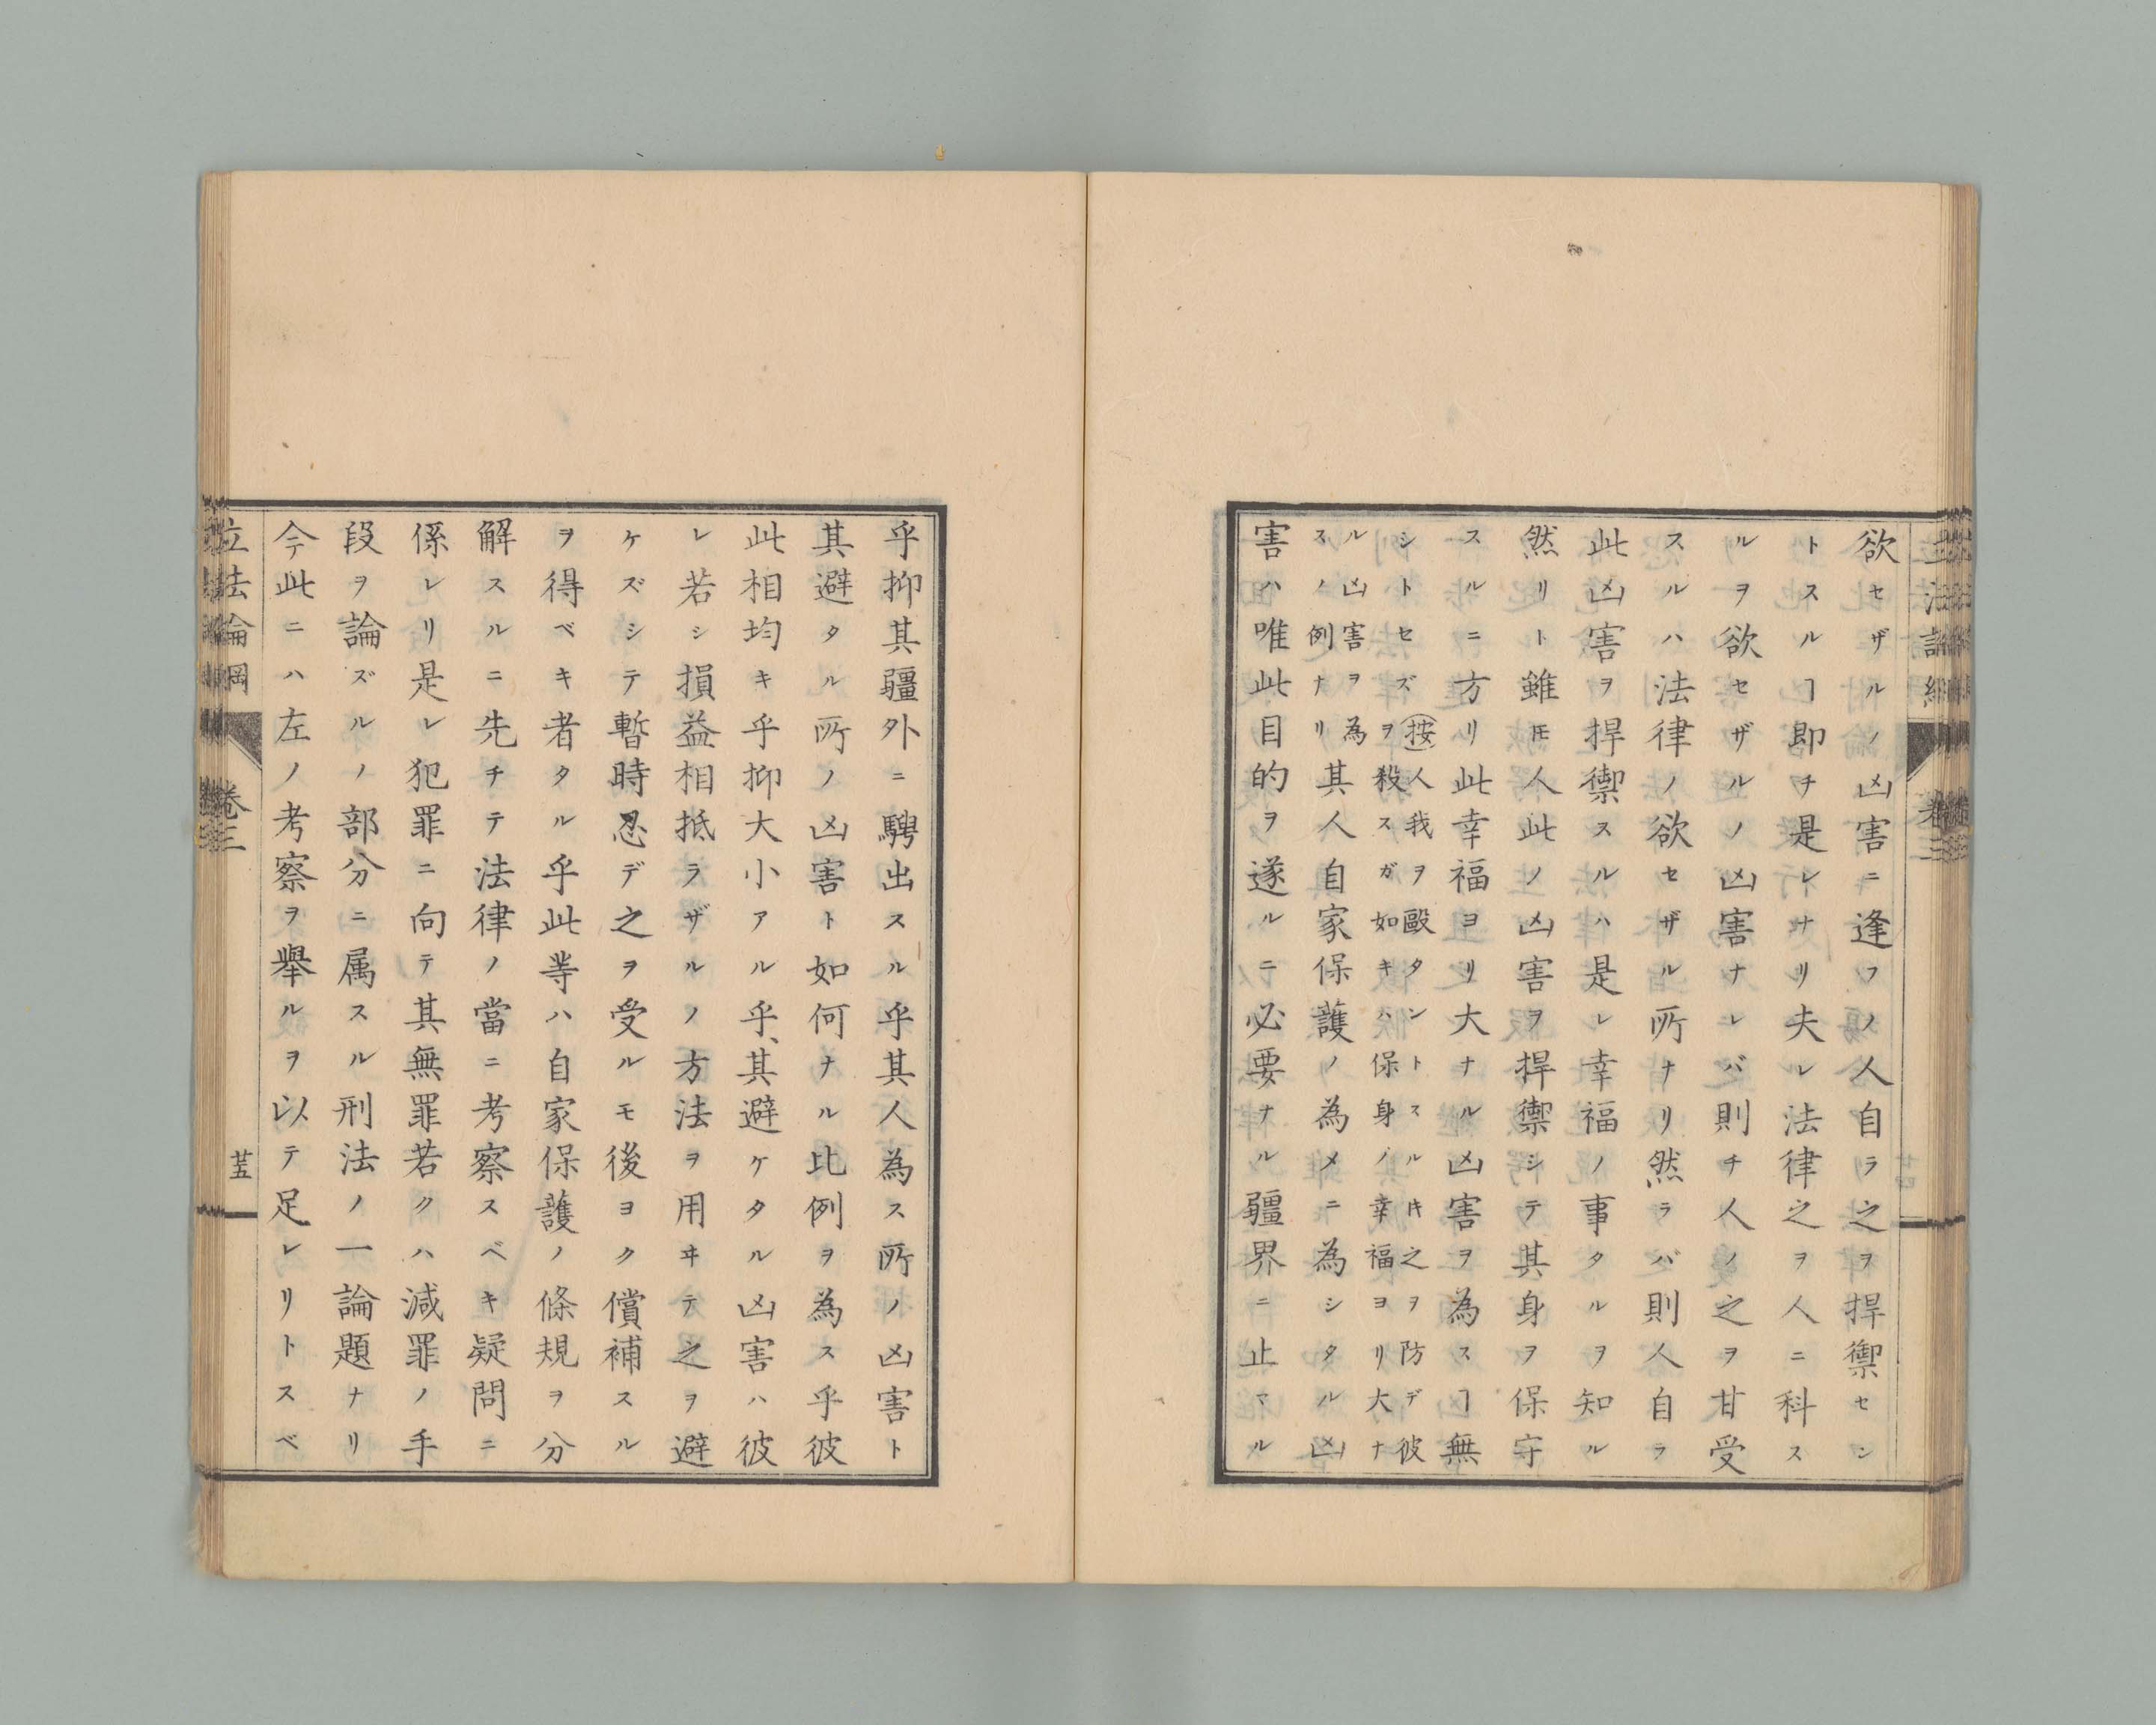 欲セザルノ凶害ニ逢フノ人自ラ之ヲ捍禦セン
トスルヿ即チ是レナリ夫レ法律之ヲ人ニ科ス
ルヲ欲セザルノ凶害ナレバ則チ人ノ之ヲ甘受
スルハ法律ノ欲セザル所ナリ然ラバ則人自ラ
此凶害ヲ捍禦スルハ是レ幸福ノ事タルヲ知ル
然リト雖𪜈人此ノ凶害ヲ捍禦シテ其身ヲ保守
スルニ方リ此幸福ヨリ大ナル凶害ヲ為スヿ無
シトセズ按人我ヲ毆タントスルキ之ヲ防デ彼
ヲ殺スガ如キハ保身ノ幸福ヨリ大ナ
ル凶害ヲ為
スノ例ナリ其人自家保護ノ為メニ為シタル凶
害ハ唯此目的ヲ遂ルニ必要ナル疆界ニ止マル
乎抑其疆外ニ騁出スル乎其人為ス所ノ凶害ト
其避タル所ノ凶害ト如何ナル比例ヲ為ス乎彼
此相均キ乎抑大小アル乎、其避ケタル凶害ハ彼
レ若シ損益相抵ラザルノ方法ヲ用ヰテ之ヲ避
ケズシテ暫時忍デ之ヲ受ルモ後ヨク償補スル
ヲ得ベキ者タル乎此等ハ自家保護ノ條規ヲ分
解スルニ先チテ法律ノ當ニ考察スベキ疑問ニ
係レリ是レ犯罪ニ向テ其無罪若クハ減罪ノ手
段ヲ論ズルノ部分ニ属スル刑法ノ一論題ナリ
今此ニハ左ノ考察ヲ舉ルヲ以テ足レリトスベ
立法論綱
卷三
廿五